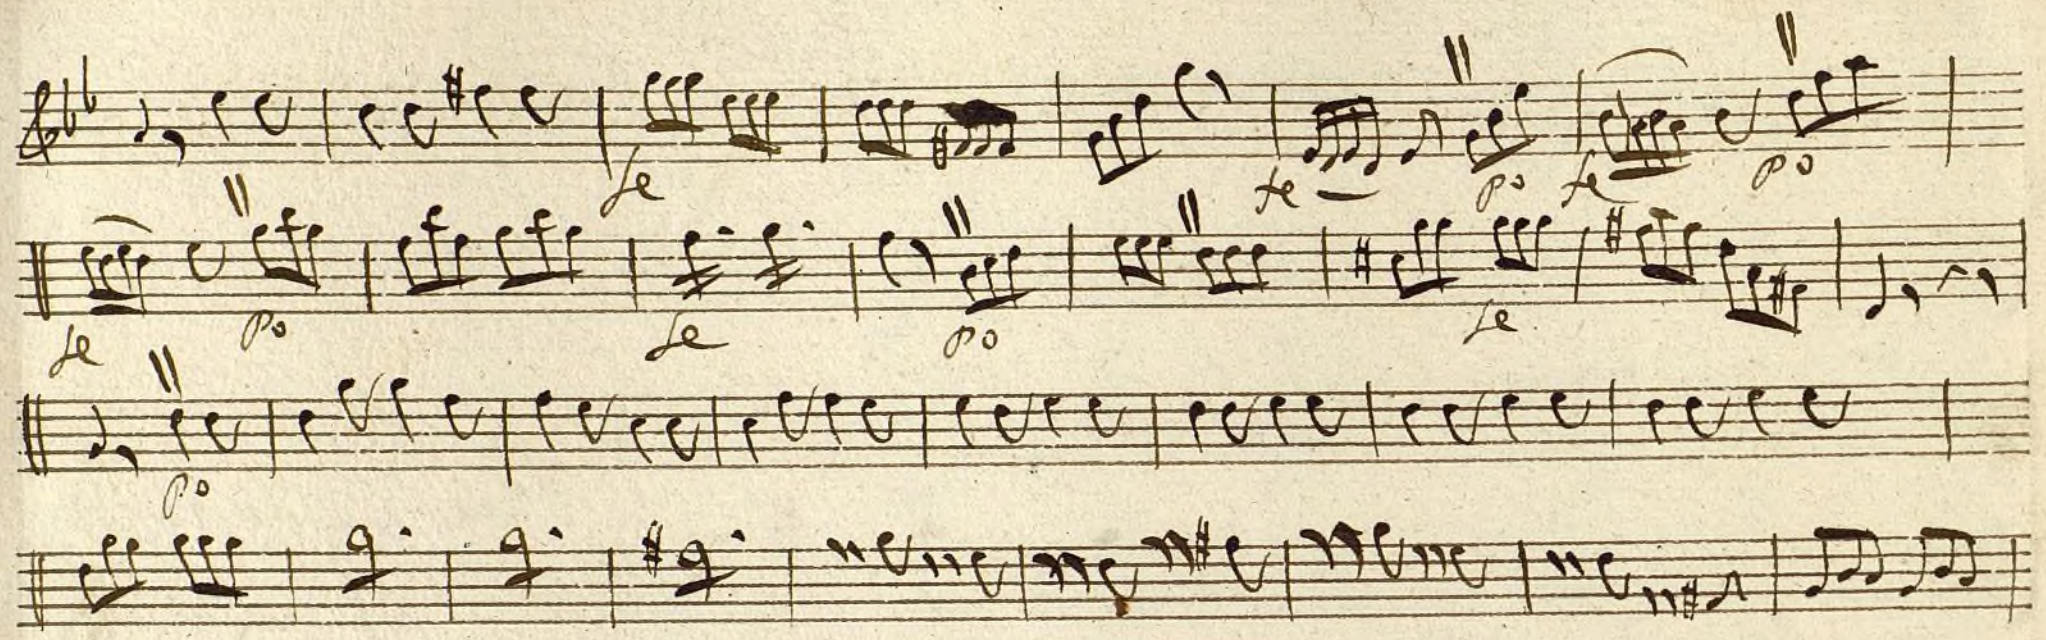 fe fe po fe po
fe po fe po fe
po